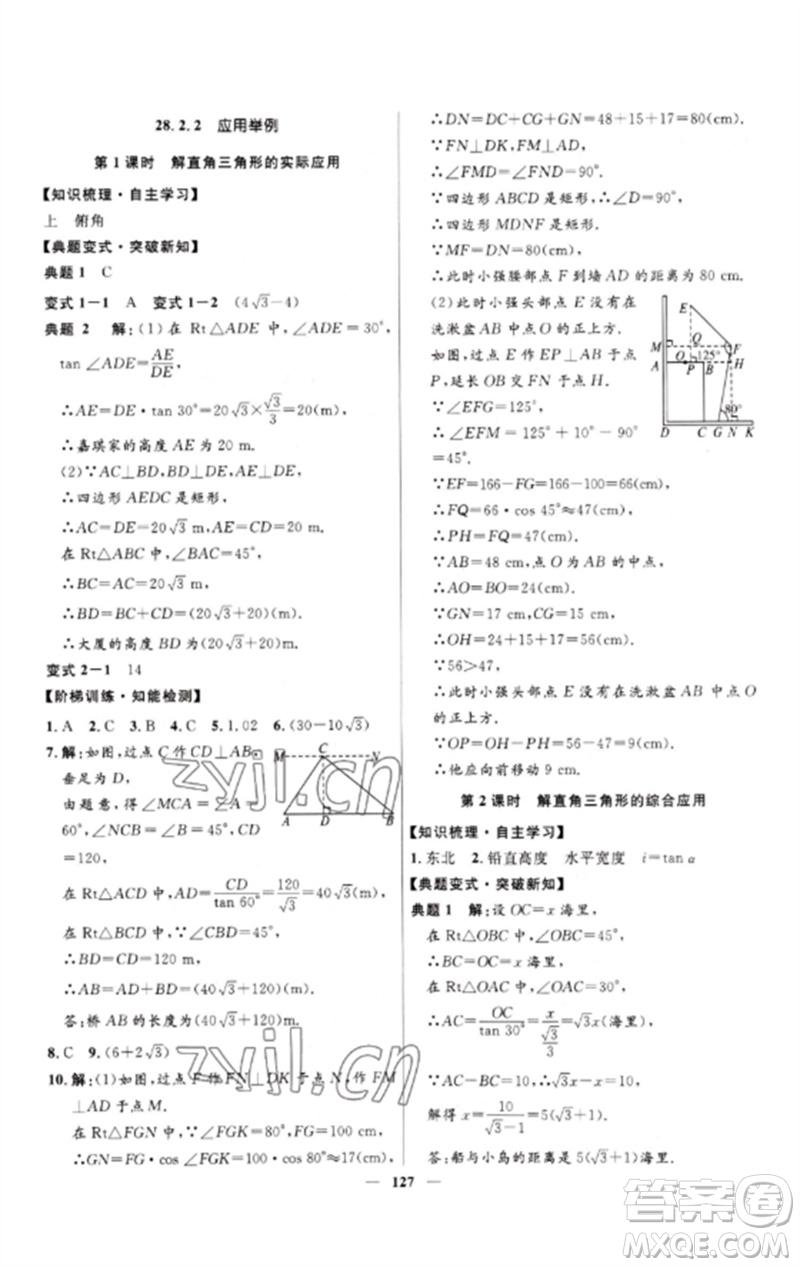 28.2.2 应用举例
第1课时 解直角三角形的实际应用
【知识梳理·自主学习】
上 俯角
【典题变式·突破新知】
典题1 C
变式1-1 A 变式1-2 (4√3-4)
典题2 解:(1)在 Rt△ADE 中,∠ADE=30°,
tan ∠ADE=AE/DE,
∴AE=DE·tan 30°=20√3×√3/3=20(m).
∴嘉琪家的高度 AE 为 20 m.
(2)∵AC⊥BD,BD⊥DE,AE⊥DE,
∴四边形 AEDC 是矩形,
∴AC=DE=20√3 m,AE=CD=20 m.
在 Rt△ABC 中,∠BAC=45°,
∴BC=AC=20√3(m).
∴BD=BC+CD=(20√3+20)m.
∴大厦的高度 BD 为(20√3+20)m.
变式2-1 14
【阶梯训练·知能检测】
1.A 2.C 3.B 4.C 5.1.02 6.(30-10√3)
7.解:如图,过点 C 作 CD⊥AB,
垂足为 D,
由题意,得∠MCA=∠A=
60°,∠NCB=∠B=45°,CD
=120,
在 Rt△ACD 中,AD=CD/tan 60°=120/√3=40√3(m),
在 Rt△BCD 中,∵∠CBD=45°,
∴BD=CD=120(m).
∴AB=AD+BD=(40√3+120)(m).
答:桥 AB 的长度为(40√3+120)m.
8.C 9.(6+2√3)
10.解:(1)如图,过点 F 作 FN⊥DK 于点 N,作 FM
⊥AD 于点 M.
在 Rt△FGN 中,∵∠FGK=80°,FG=100,
∴GN=FG·cos ∠FGK=100·cos 80°≈17(cm),
M C N
A D B
∴DN=DC+CG+GN=48+15+17=80(cm).
∵FN⊥DK,FM⊥AD,
∴∠FMD=∠FND=90°.
∵四边形 ABCD 是矩形,∴∠D=90°.
∴四边形 MDNF 是矩形.
∴MF=DN=80(cm).
∴此时小强腰部点 F 到墙 AD 的距离为 80 cm.
(2)此时小强头部点 E 没有在
洗漱盆 AB 的中点 O 的正上方.
如图,过点 E 作 EP⊥AB 于点
P,延长 OB 交 FN 于点 H.
∵∠EFG=125°,
∴∠EFM=125°+10°-90°
=45°.
∵EF=166-FG=166-100=66(cm),
∴FQ=66·cos 45°≈47(cm).
∴PH=FQ=47(cm).
∵AB=48 cm,点 O 为 AB 的中点,
∴AO=BO=24(cm).
∵GN=17 cm,CG=15(cm),
∴OH=24+15+17=56(cm).
∵56>47,
∴此时小强头部点 E 没有在洗漱盆 AB 的中点 O
的正上方.
∵OP=OH-PH=56-47=9(cm).
∴他应向前移动 9 cm.
E
M Q F
A O P 125° B H
80°
D C G N K
第2课时 解直角三角形的综合应用
【知识梳理·自主学习】
1.东北 2.铅直高度 水平宽度 i=tan α
【典题变式·突破新知】
典题1 解:设 OC=x 海里,
在 Rt△OBC 中,∠OBC=45°,
∴BC=OC=x 海里,
在 Rt△OAC 中,∠OAC=30°,
∴AC=OC/tan 30°=x/(√3/3)=√3x(海里),
∵AC-BC=10,∴√3x-x=10,
解得 x=10/(√3-1)=5(√3+1).
答:船与小岛的距离是 5(√3+1)海里.
127
zyjl.cn
zyjl.cn
答案圈
MXQE.COM